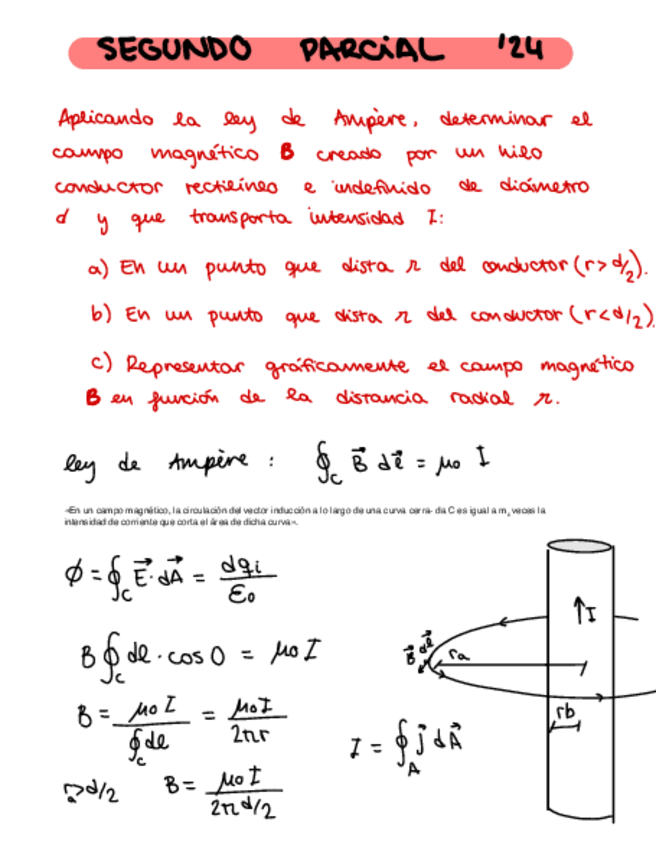 SEGUNDO PARCIAL '24
Aplicando la ley de Ampère, determinar el
campo magnético B creado por un hilo
conductor rectilíneo e indefinido de diámetro
d y que transporta intensidad I:
a) En un punto que dista r del conductor (r>d/2).
b) En un punto que dista r del conductor (r<d/2).
c) Representar gráficamente el campo magnético
B en función de la distancia radial r.
ley de Ampère : ∮_C B⃗ dℓ⃗ = μo I
«En un campo magnético, la circulación del vector inducción a lo largo de una curva cerra- da C es igual a m₀ veces la
intensidad de corriente que corta el área de dicha curva».
ϕ = ∮_C E⃗ · dA⃗ = dqi / εo
B ∮_C dℓ · cos 0 = μo I
B = μo I / ∮_C dℓ = μo I / 2πr
r_a > d/2 B = μo I / 2π d/2
I = ∮_A j⃗ dA⃗
↑I
B⃗ dℓ⃗
ra
rb